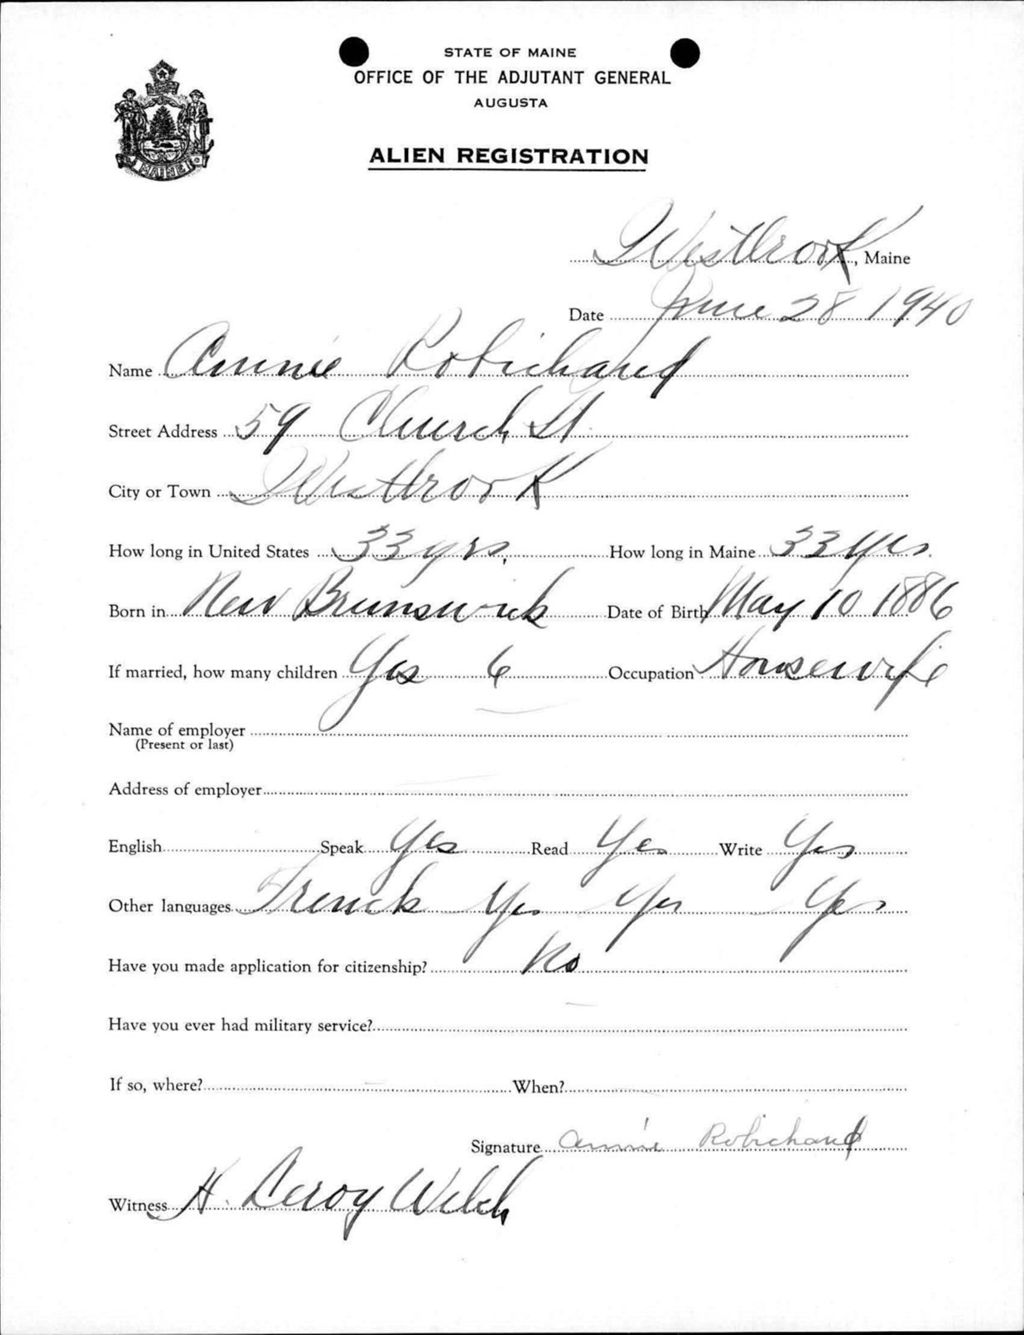 STATE OF MAINE
OFFICE OF THE ADJUTANT GENERAL
AUGUSTA
ALIEN REGISTRATION
MAINE
Westbrook, Maine
Date June 28 1940
Name Annie Robichaud
Street Address 59 Church St.
City or Town Westbrook
How long in United States 33 yrs, How long in Maine 33 yrs.
Born in New Brunswick Date of Birth May 10 1886
If married, how many children Yes 6 Occupation Housewife
Name of employer
(Present or last)
Address of employer
English Speak Yes Read Yes Write Yes
Other languages French Yes Yes Yes
Have you made application for citizenship? No
Have you ever had military service?
If so, where? When?
Signature Annie Robichaud
Witness H. Leroy Welch